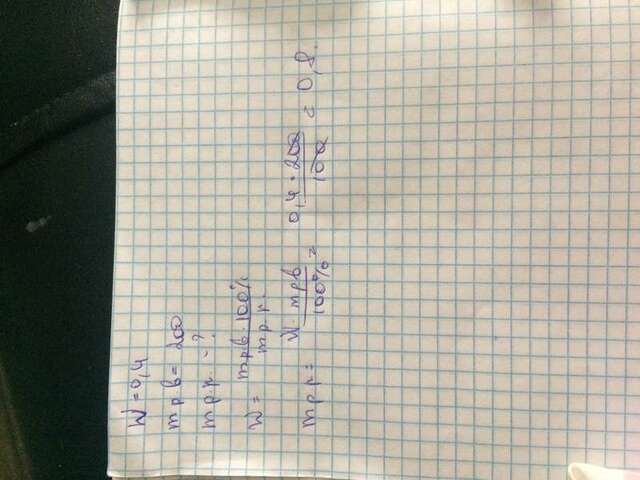 W = 0,4
mрв = 200
mр.р. - ?
W = mрв · 100% / mр.р.
mр.р = W · mрв / 100% = 0,4 · 200 / 100 = 0,8.